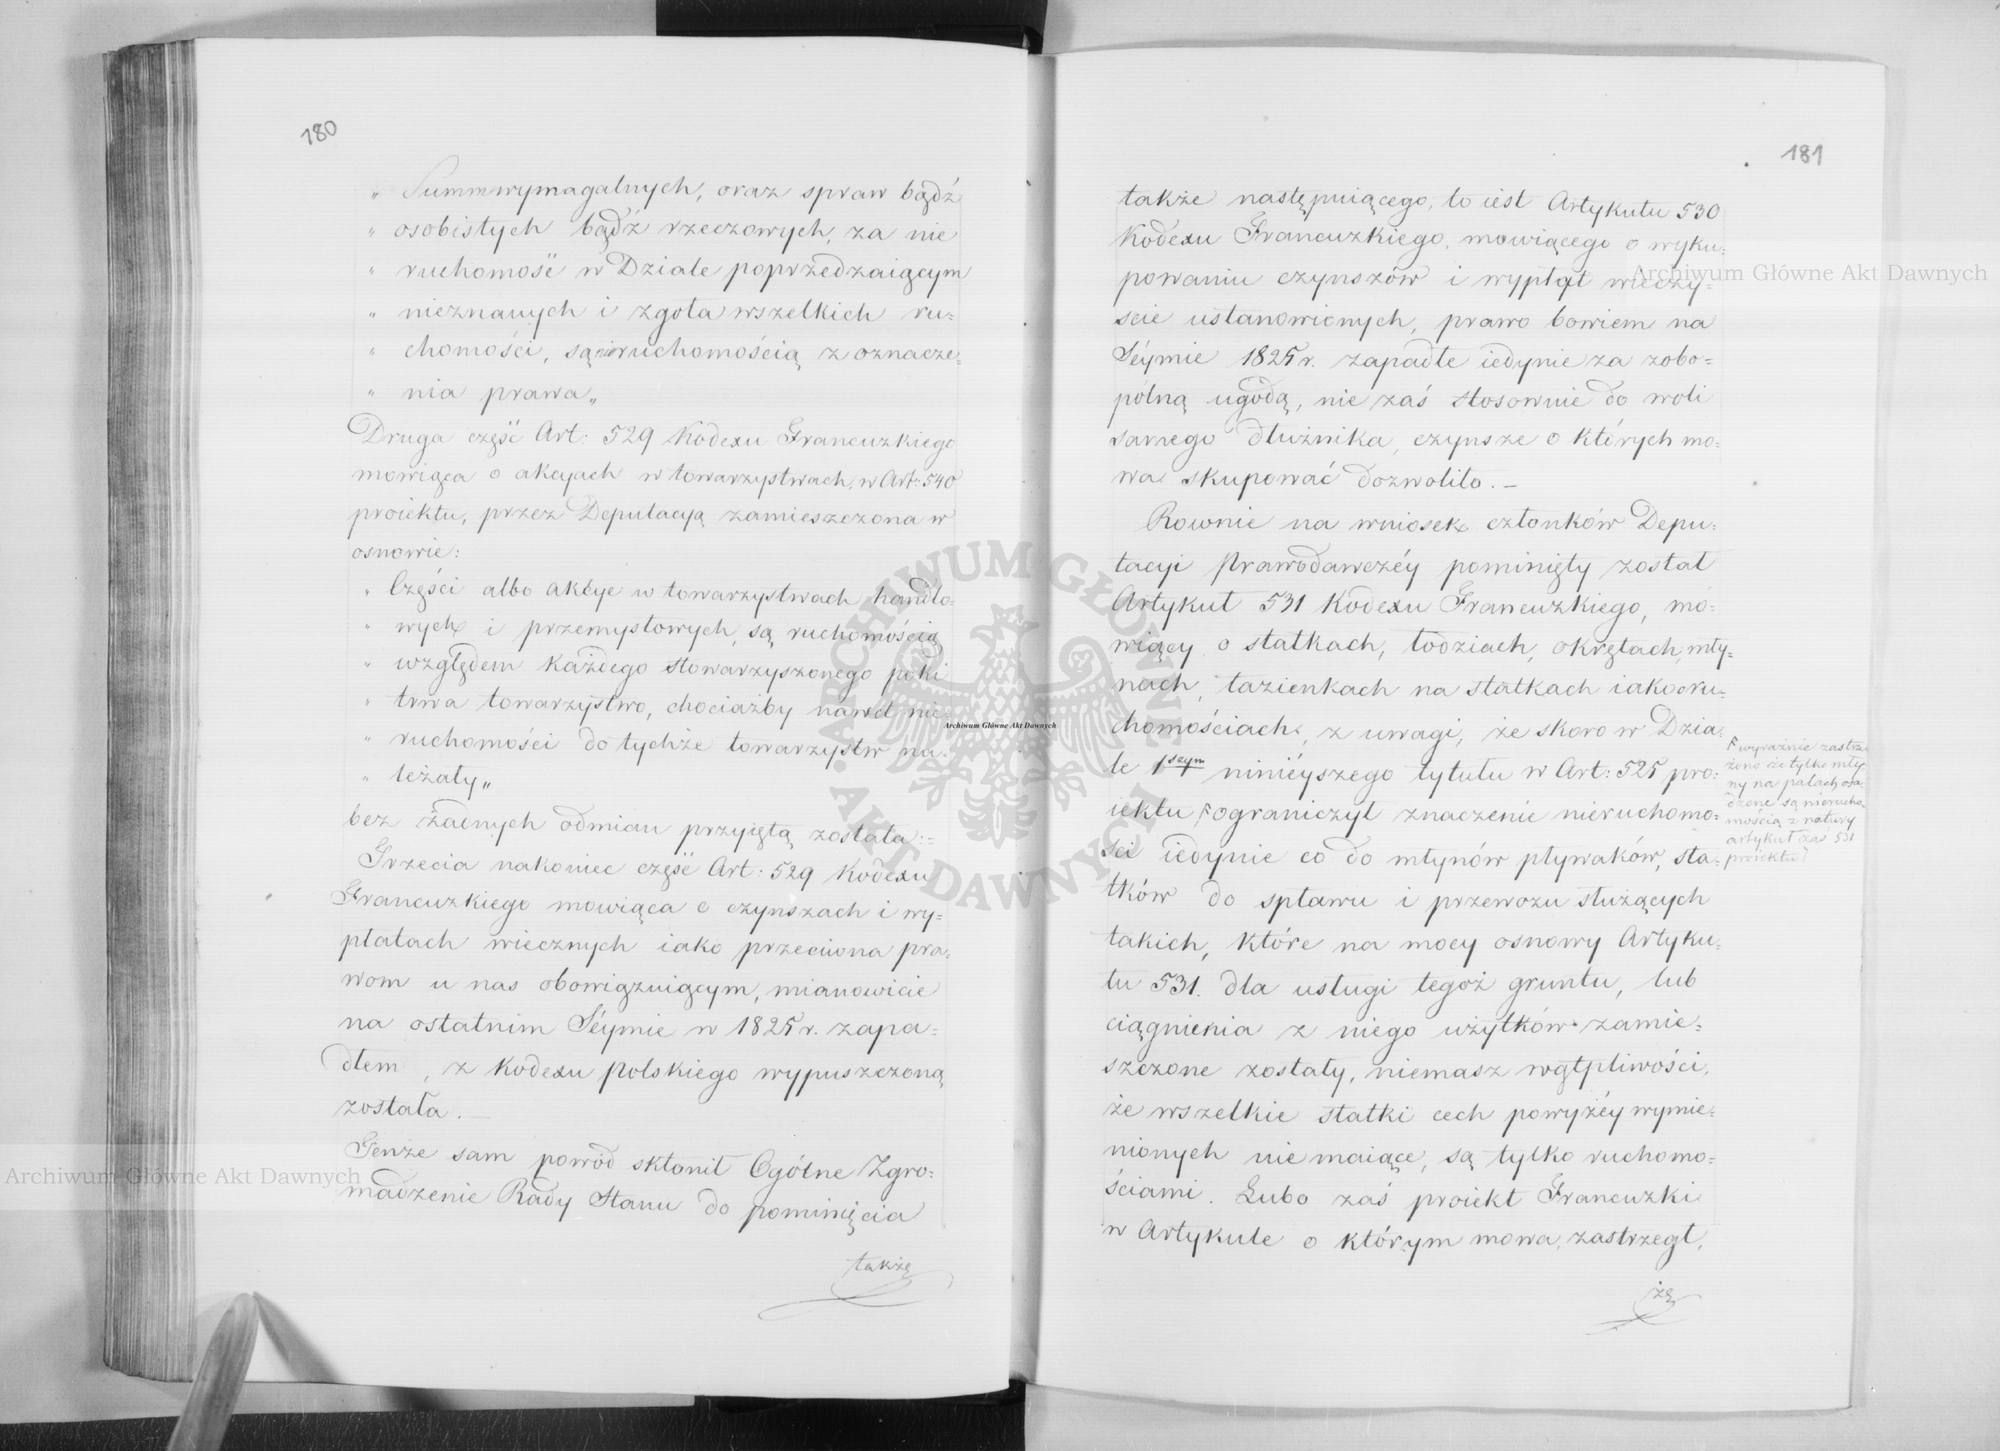 180
„ Summ wymagalnych, oraz spraw bądź
„ osobistych bądź rzeczowych, za nie
„ ruchomość w Dziale poprzedzaiącym
„ nieznanych i zgoła wszelkich ru=
„ chomości, są nieruchomością z oznacze=
„ nia prawa„
Druga część Art: 529 Kodexu Francuzkiego
mowiąca o akcyach w towarzystwach, w Art: 540
proiektu, przez Deputacyą zamieszczona w
osnowie:
„ Części albo akcye w towarzystwach handlo=
„ wych i przemysłowych, są ruchomością
„ względem każdego stowarzyszonego poki
„ trwa towarzystwo, chociażby nawet nie
„ ruchomości do tychże towarzystw na=
„ leżały„
bez żadnych odmian przyiętą została:-
Trzecia nakoniec część Art: 529 Kodexu
Francuzkiego mowiąca o czynszach i wy=
płatach wiecznych iako przeciwna pra=
wom u nas obowięzuiącym, mianowicie
na ostatnim Séymie w 1825 r. zapa=
dłem, z Kodexu polskiego wypuszczoną
została. —
Tenże sam powód skłonił Ogólne Zgro=
madzenie Rady Stanu do pominięcia
także
181
także następuiącego, to iest Artykułu 530
Kodexu Francuzkiego, mowiącego o wyku=
powaniu czynszów i wypłat wieczy=
scie ustanowionych, prawo bowiem na
Séymie 1825 r. zapadłe iedynie za zobo=
pólną ugodą, nie zaś stosownie do woli
samego dłużnika, czynsze o których mo=
wa skupować dozwoliło. —
Rownie na wniosek członków Depu=
tacyi Prawodawczéy pominięty został
Artykuł 531 Kodexu Francuzkiego, mó=
wiący o statkach, łodziach, okrętach, mły=
nach, łazienkach na statkach iako o ru=
chomościach, z uwagi, że skoro w Dzia=
le 1szym ninieyszego tytułu w Art: 525 pro=
iektu, F ograniczył znaczenie nieruchomo=
ści iedynie co do młynów pływaków, sta=
tków do spławu i przewozu służących
takich, które na mocy osnowy Artyku=
łu 531. dla usługi tegoż gruntu, lub
ciągnienia z niego użytków zamie=
szczone zostały, niemasz wątpliwości,
że wszelkie statki cech powyżéy wymie=
nionych nie maiące, są tylko ruchomo=
ściami. Lubo zaś proiekt Francuzki
w Artykule o którym mowa, zastrzegł,
że
F wyraźnie zastrze
żono że tylko mły
ny na palach osa=
dzone są nierucho=
mością z natury
artykuł zaś 531
proiektu
Archiwum Główne Akt Dawnych
Archiwum Główne Akt Dawnych
Archiwum Główne Akt Dawnych
ARCHIWUM GŁÓWNE AKT DAWNYCH